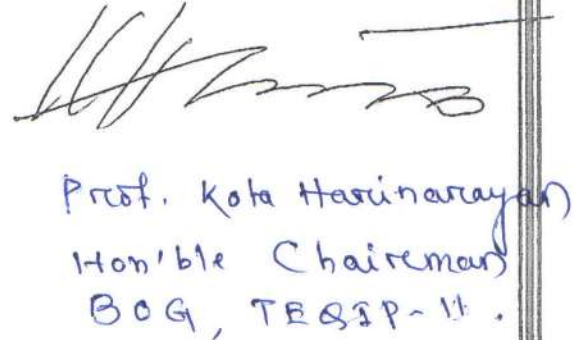 Prof. Kota Harinarayan
Hon'ble Chaireman
BOG, TEQIP-II.